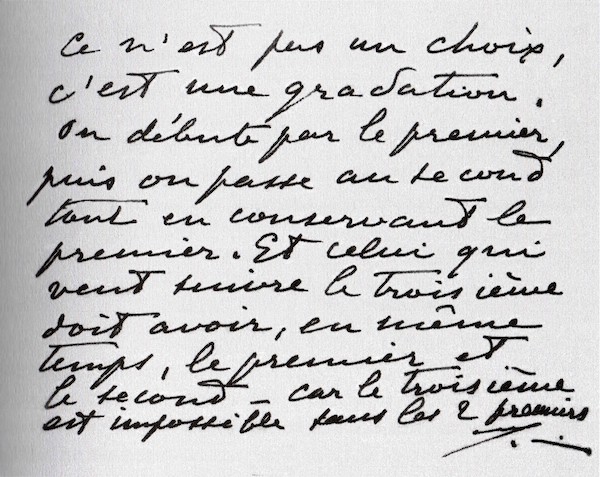 Ce n'est pas un choix,
c'est une gradation.
On débute par le premier,
puis on passe au second
tout en conservant le
premier. Et celui qui
veut suivre le troisième
doit avoir, en même
temps, le premier et
le second – car le troisième
est impossible sans les 2 premiers